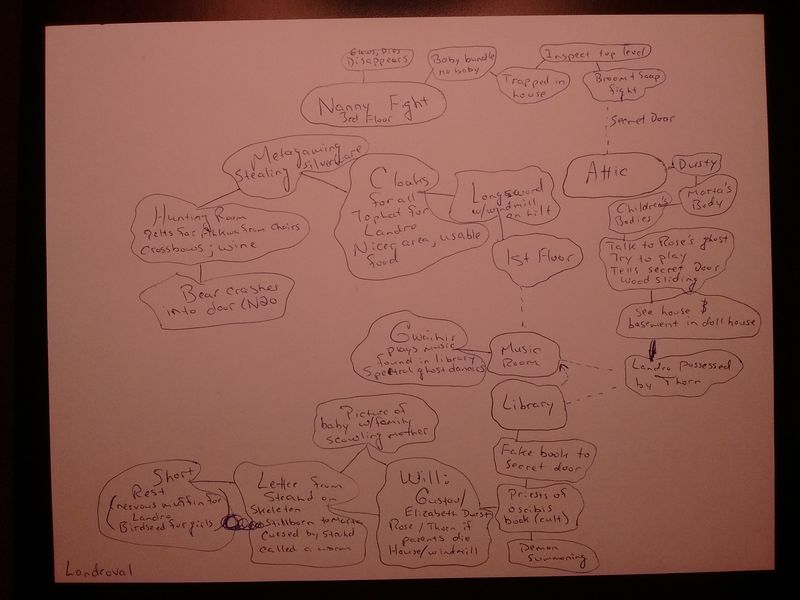 Disappears
Baby bundle
no baby
Trapped in
house
Inspect top level
Broom + Soap
fight
Nanny Fight
3rd Floor
Secret Door
Attic
Dusty
Maria's
Body
Children's
Bodies
Talk to Rose's ghost
Try to play
Tells secret Door
Wood sliding
See house &
basement in doll house
Landro possessed
by Thorn
Metagaming
Stealing silverware
Cloaks
for all
Tophat for
Landro
Nicer area, usable
food
Longsword
w/windmill
on hilt
1st Floor
Hunting Room
Pelts for from chairs
Crossbows; wine
Bear crashes
into door (N20
Gwaihir
plays music
found in library
Spectral ghost dancers
Music
Room
Library
Fake book to
secret door
Priests of
Oseibis
book (cult)
Demon
Summoning
Will:
Gustav/
Elizabeth Durst
Rose/Thorn if
parents die
House/windmill
Picture of
baby w/family
scowling mother
Letter from
Strahd on
Skeleton
Stillborn
Cursed by Strahd
called a worm
Short
Rest
(nervous muffin for
Landro
Birdseed for girls
Landroval